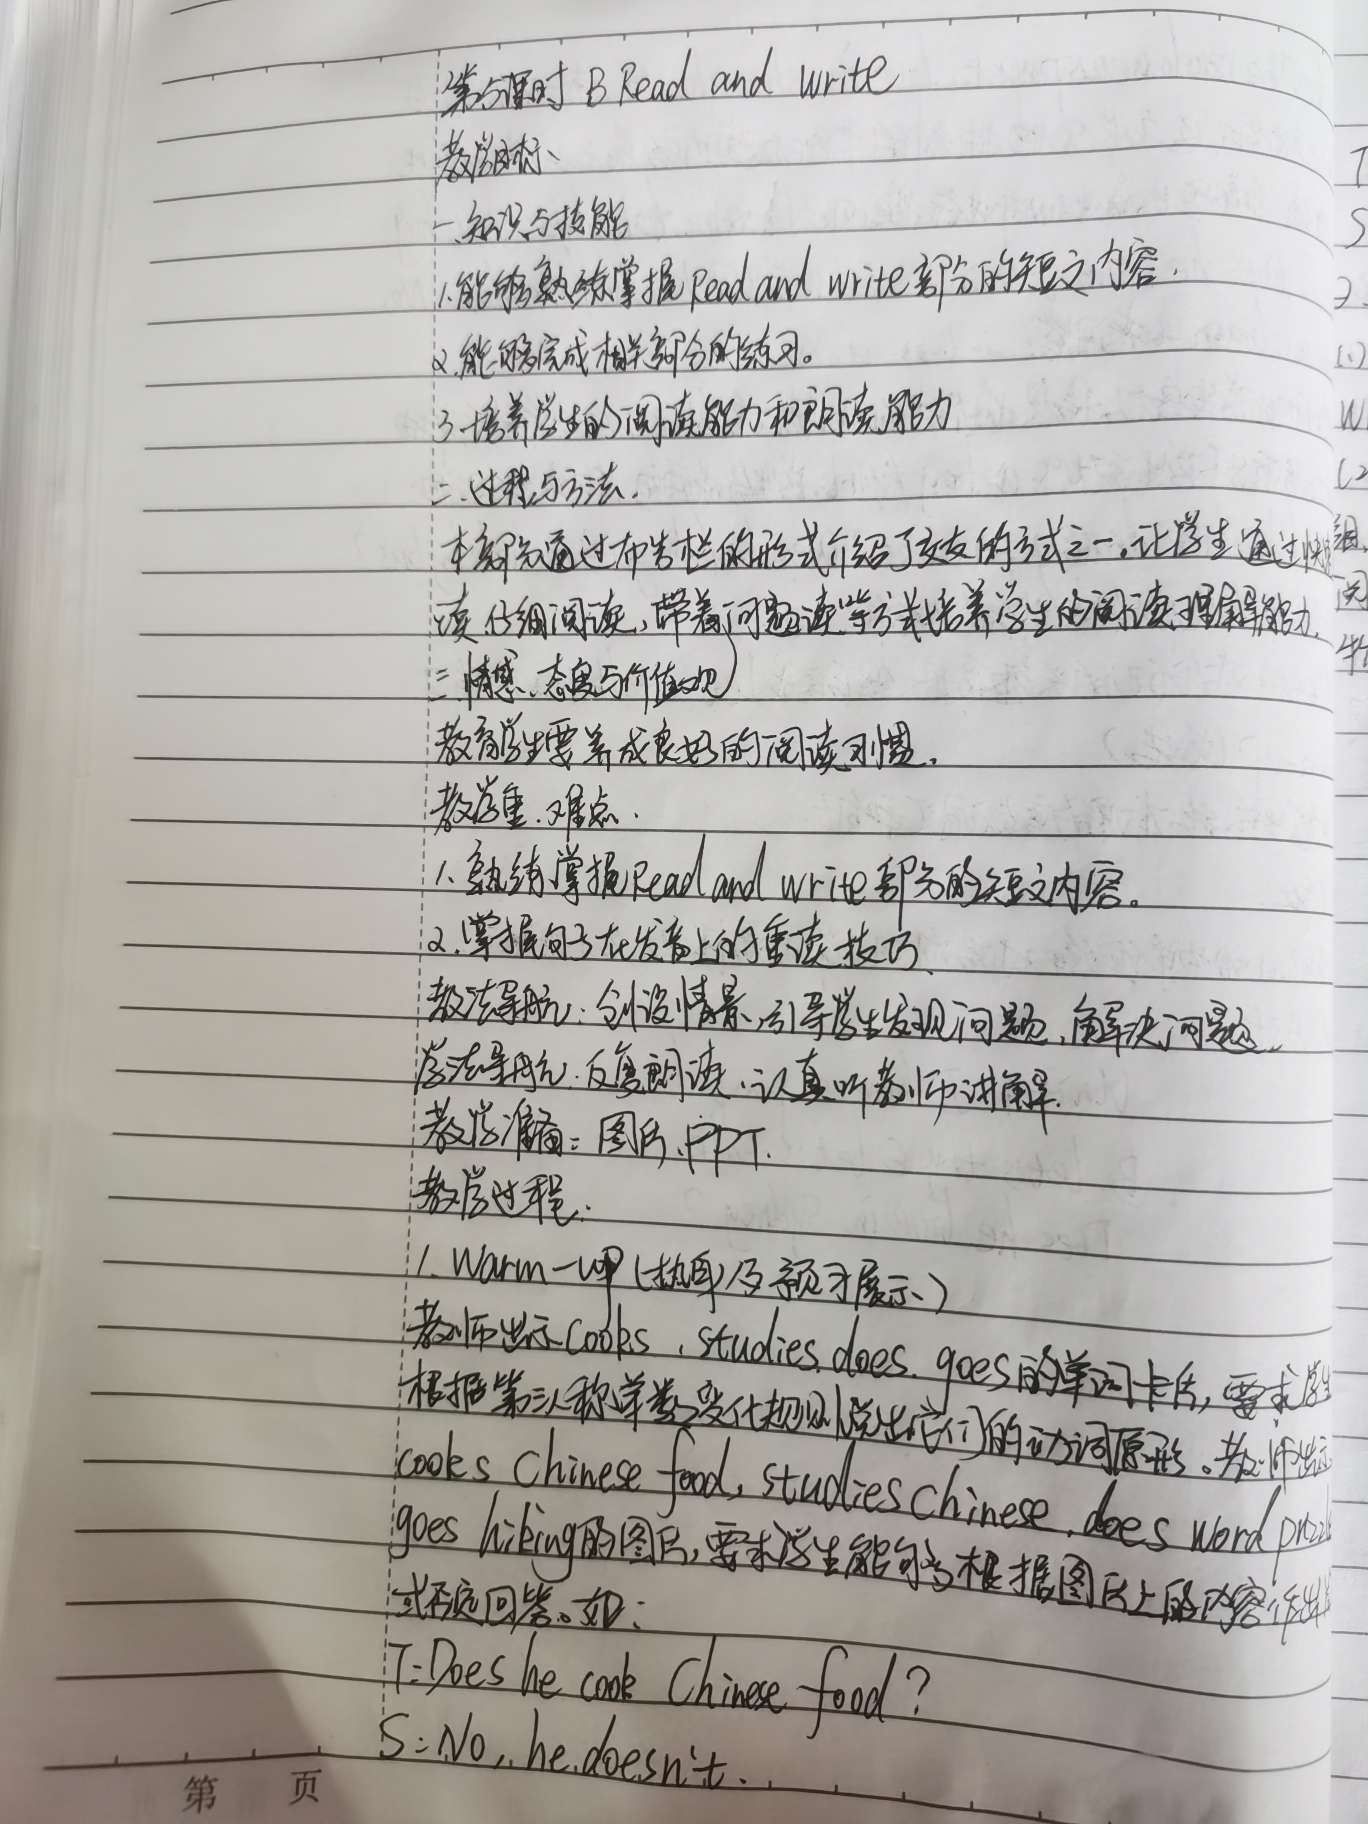 第五课时 B Read and write
教学目标
一.知识与技能
1.能够熟练掌握Read and write部分的短文内容.
2.能够完成相关部分的练习。
3.培养学生的阅读能力和朗读能力
二.过程与方法.
本部分通过布告栏的形式介绍了交友的方式之一。让学生通过快
读.仔细阅读,带着问题读等方式培养学生的阅读理解能力.
三.情感、态度与价值观
教育学生要养成良好的阅读习惯.
教学重.难点.
1.熟练掌握Read and write部分的短文内容。
2.掌握句子在发音上的重读技巧.
教法导航:创设情景,引导学生发现问题,解决问题.
学法导航:反复朗读.认真听教师讲解.
教学准备:图片、PPT.
教学过程:
1. Warm-up (热身及预习展示)
教师出示cooks, studies. does. goes的单词卡片,要求学生
根据第三人称单数变化规则说出它们的动词原形。教师出示
cooks Chinese food, studies Chinese, does word puzzle
goes hiking的图片,要求学生能够根据图片上的内容作出
或否定回答。如:
T: Does he cook Chinese food?
S: No, he doesn't.
第 页
T
S
W